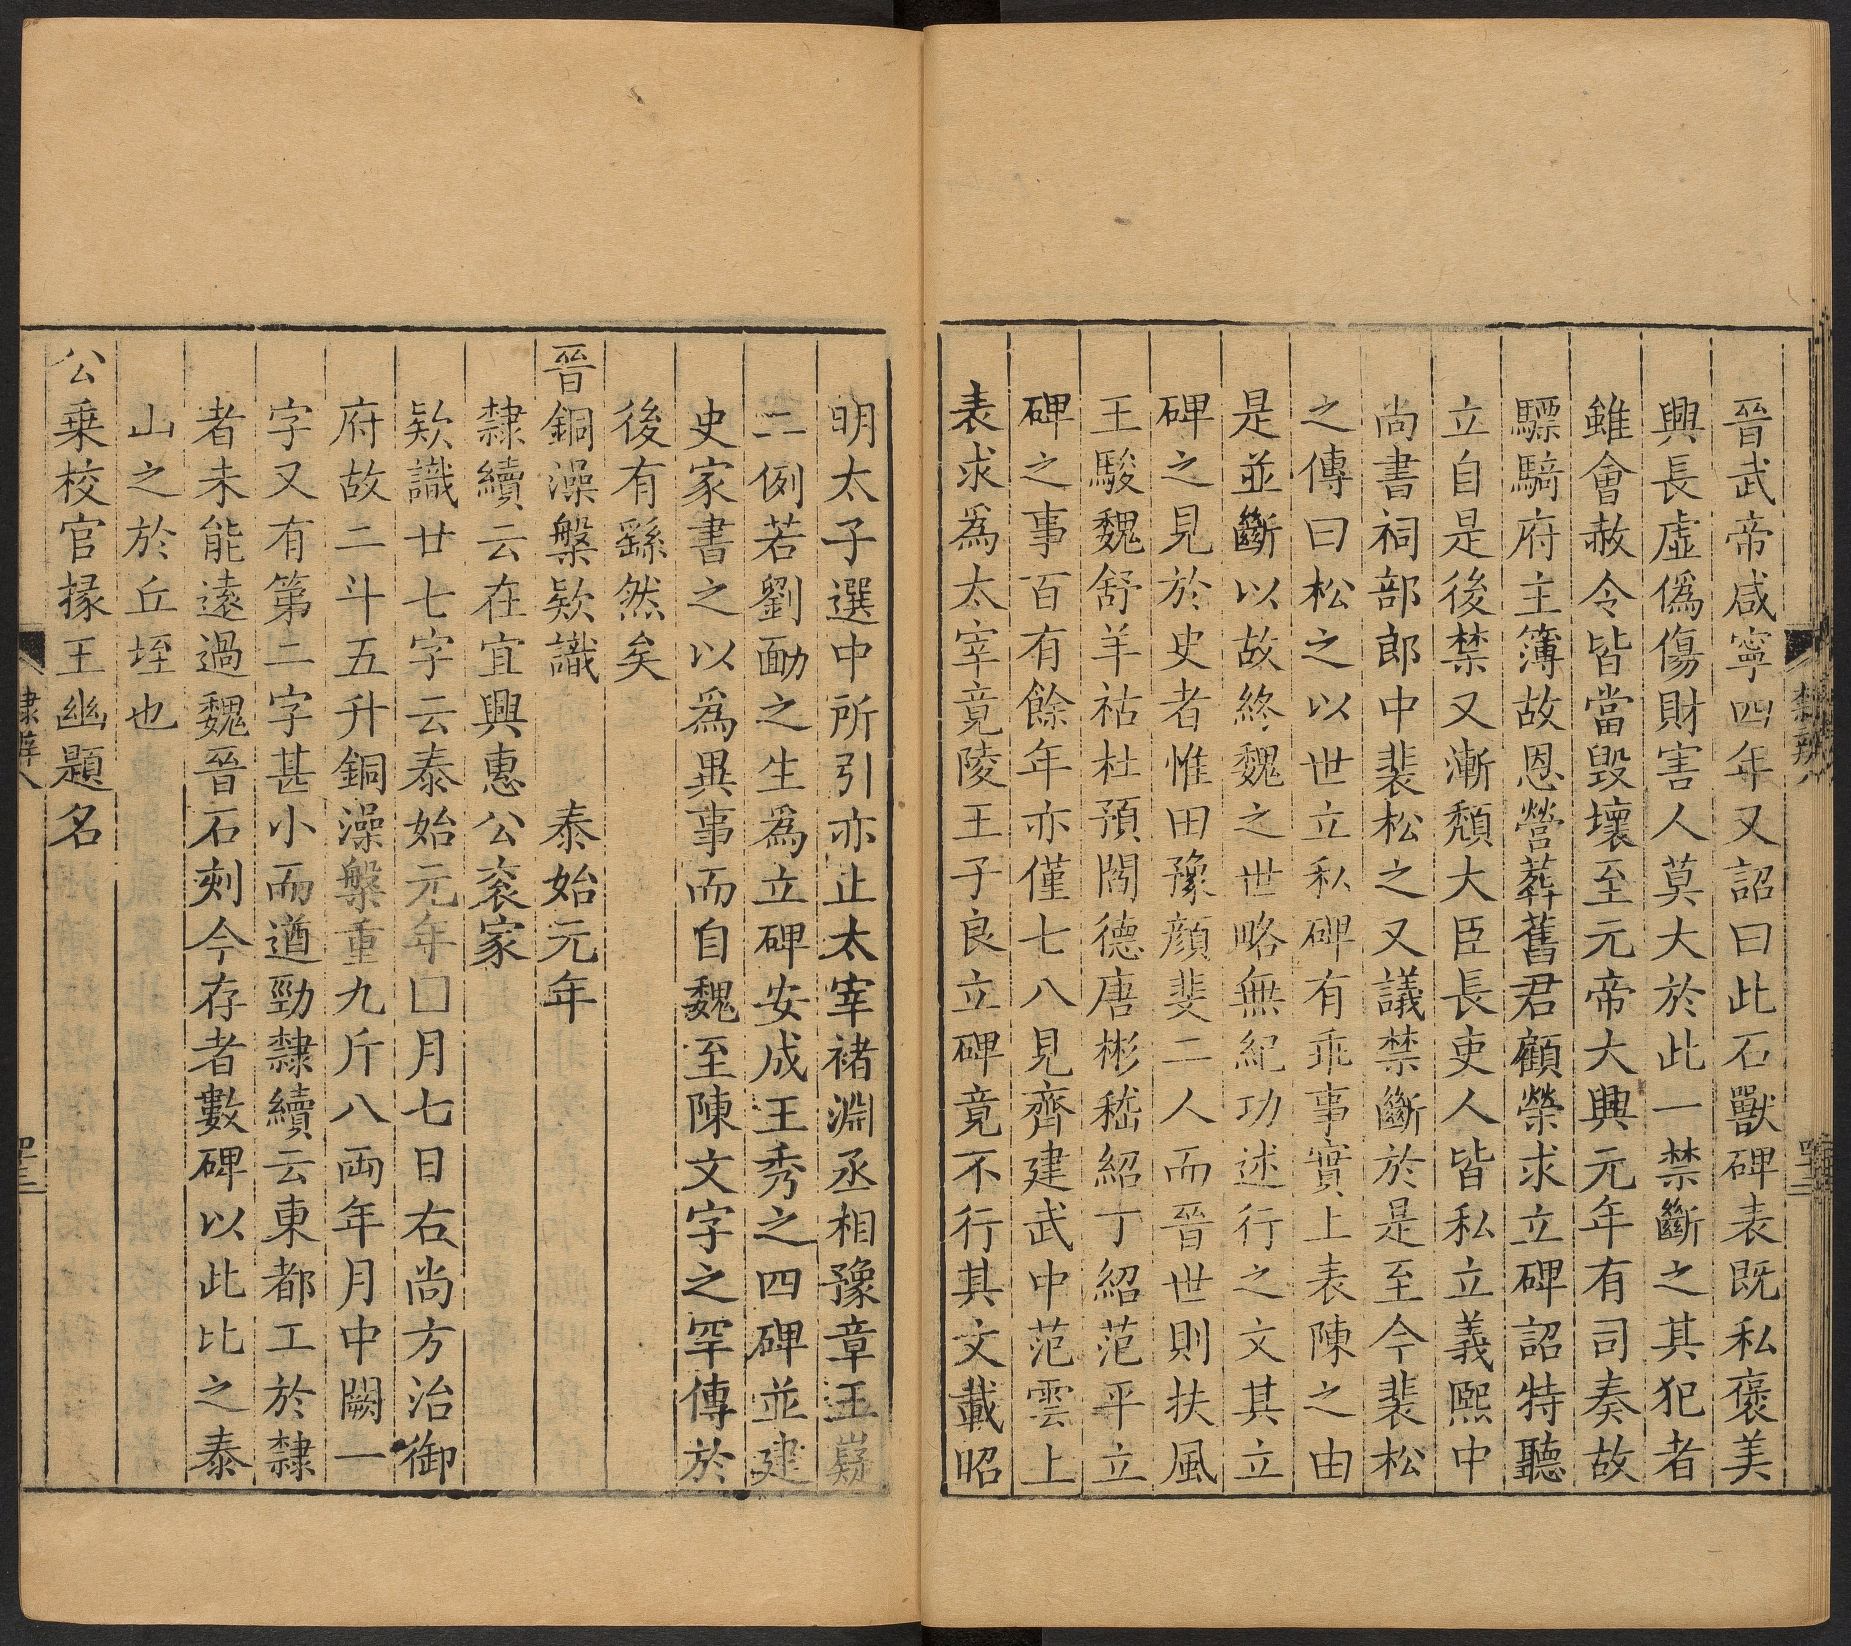 晉武帝咸寧四年又詔曰此石獸碑表既私褒美
興長虛偽傷財害人莫大於此一禁斷之其犯者
雖會赦令皆當毀壞至元帝大興元年有司奏故
驃騎府主簿故恩營葬舊君顧榮求立碑詔特聽
立自是後禁又漸頹大臣長吏人皆私立義熙中
尚書祠部郎中裴松之又議禁斷於是至今裴松
之傳曰松之以世立私碑有乖事實上表陳之由
是並斷以故終魏之世略無紀功述行之文其立
碑之見於史者惟田豫顏斐二人而晉世則扶風
王駿魏舒羊祜杜預閻德唐彬嵇紹丁紹范平立
碑之事百有餘年亦僅七八見齊建武中范雲上
表求為太宰竟陵王子良立碑竟不行其文載昭
明太子選中所引亦止太宰褚淵丞相豫章王嶷
二例若劉勔之生為立碑安成王秀之四碑並建
史家書之以為異事而自魏至陳文字之罕傳於
後有繇然矣
晉銅澡槃欵識 泰始元年
隸續云在宜興惠公衮家
欵識廿七字云泰始元年□月七日右尚方治御
府故二斗五升銅澡槃重九斤八兩年月中闕一
字又有第二字甚小而遒勁隸續云東都工於隸
者未能遠過魏晉石刻今存者數碑以此比之泰
山之於丘垤也
公乗校官掾王幽題名
隸辨八